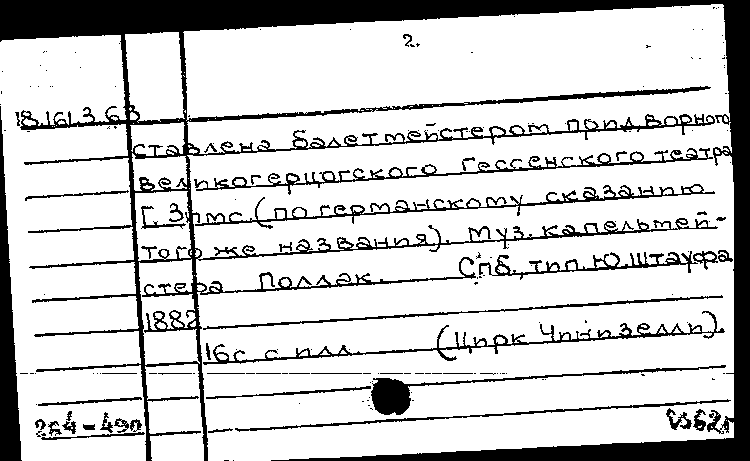 2.
18.161.3.63
ставлена балетмейстером придворного
великогерцогского Гессенского театра
Г. Зимс. (по германскому сказанию
того же названия). Муз. капельмей-
стера Поллак. Спб., тип. Ю. Штауфа
1882
16с. с илл. (Цирк Чинизелли).
264-490